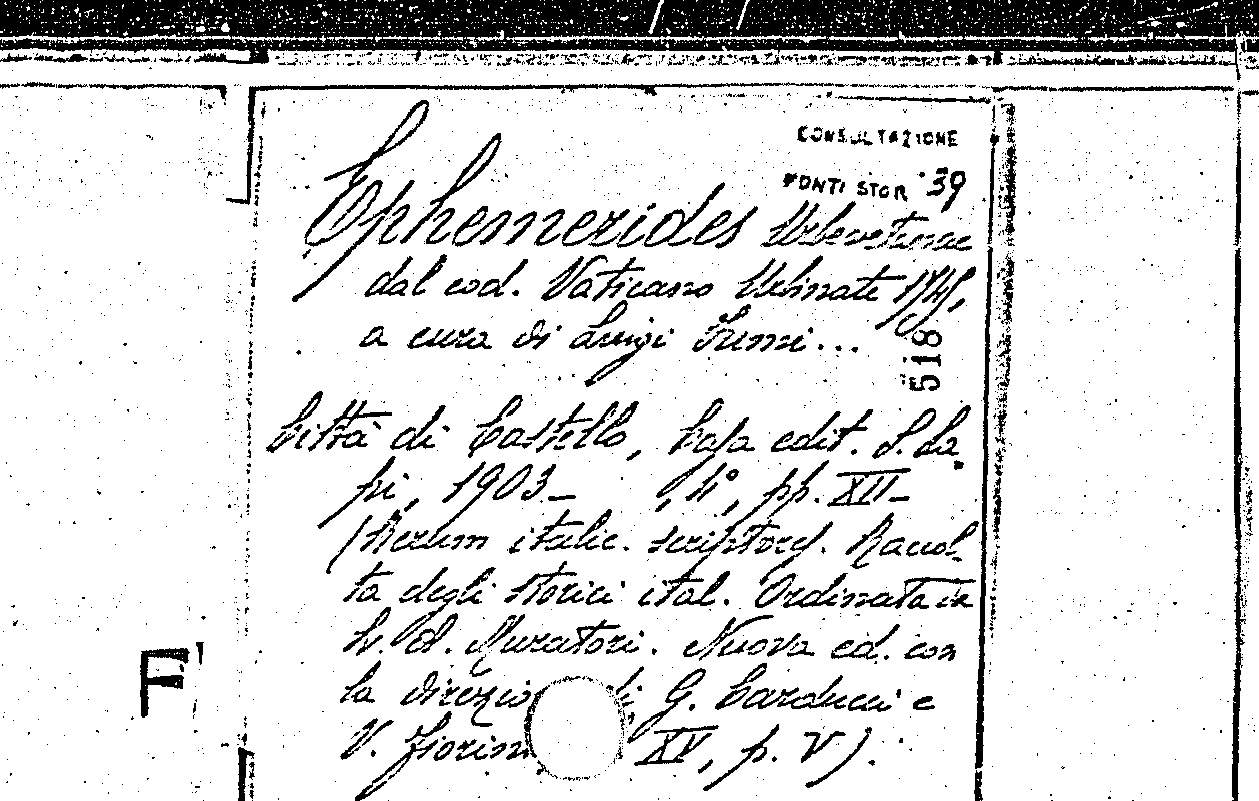 CONSULTAZIONE
FONTI STOR 39
Ephemerides Urbevetanae
dal cod. Vaticano Urbinate 1745,
a cura di Luigi Fumi...
518
Città di Castello, Casa edit. S. La
pi, 1903_ , 4°, pp. XII_
(Rerum italic. scriptores. Raccol_
ta degli storici ital. Ordinata da
L. A. Muratori. Nuova ed. con
la direzio di G. Carducci e
V. Fiorin XV, p. V).
F